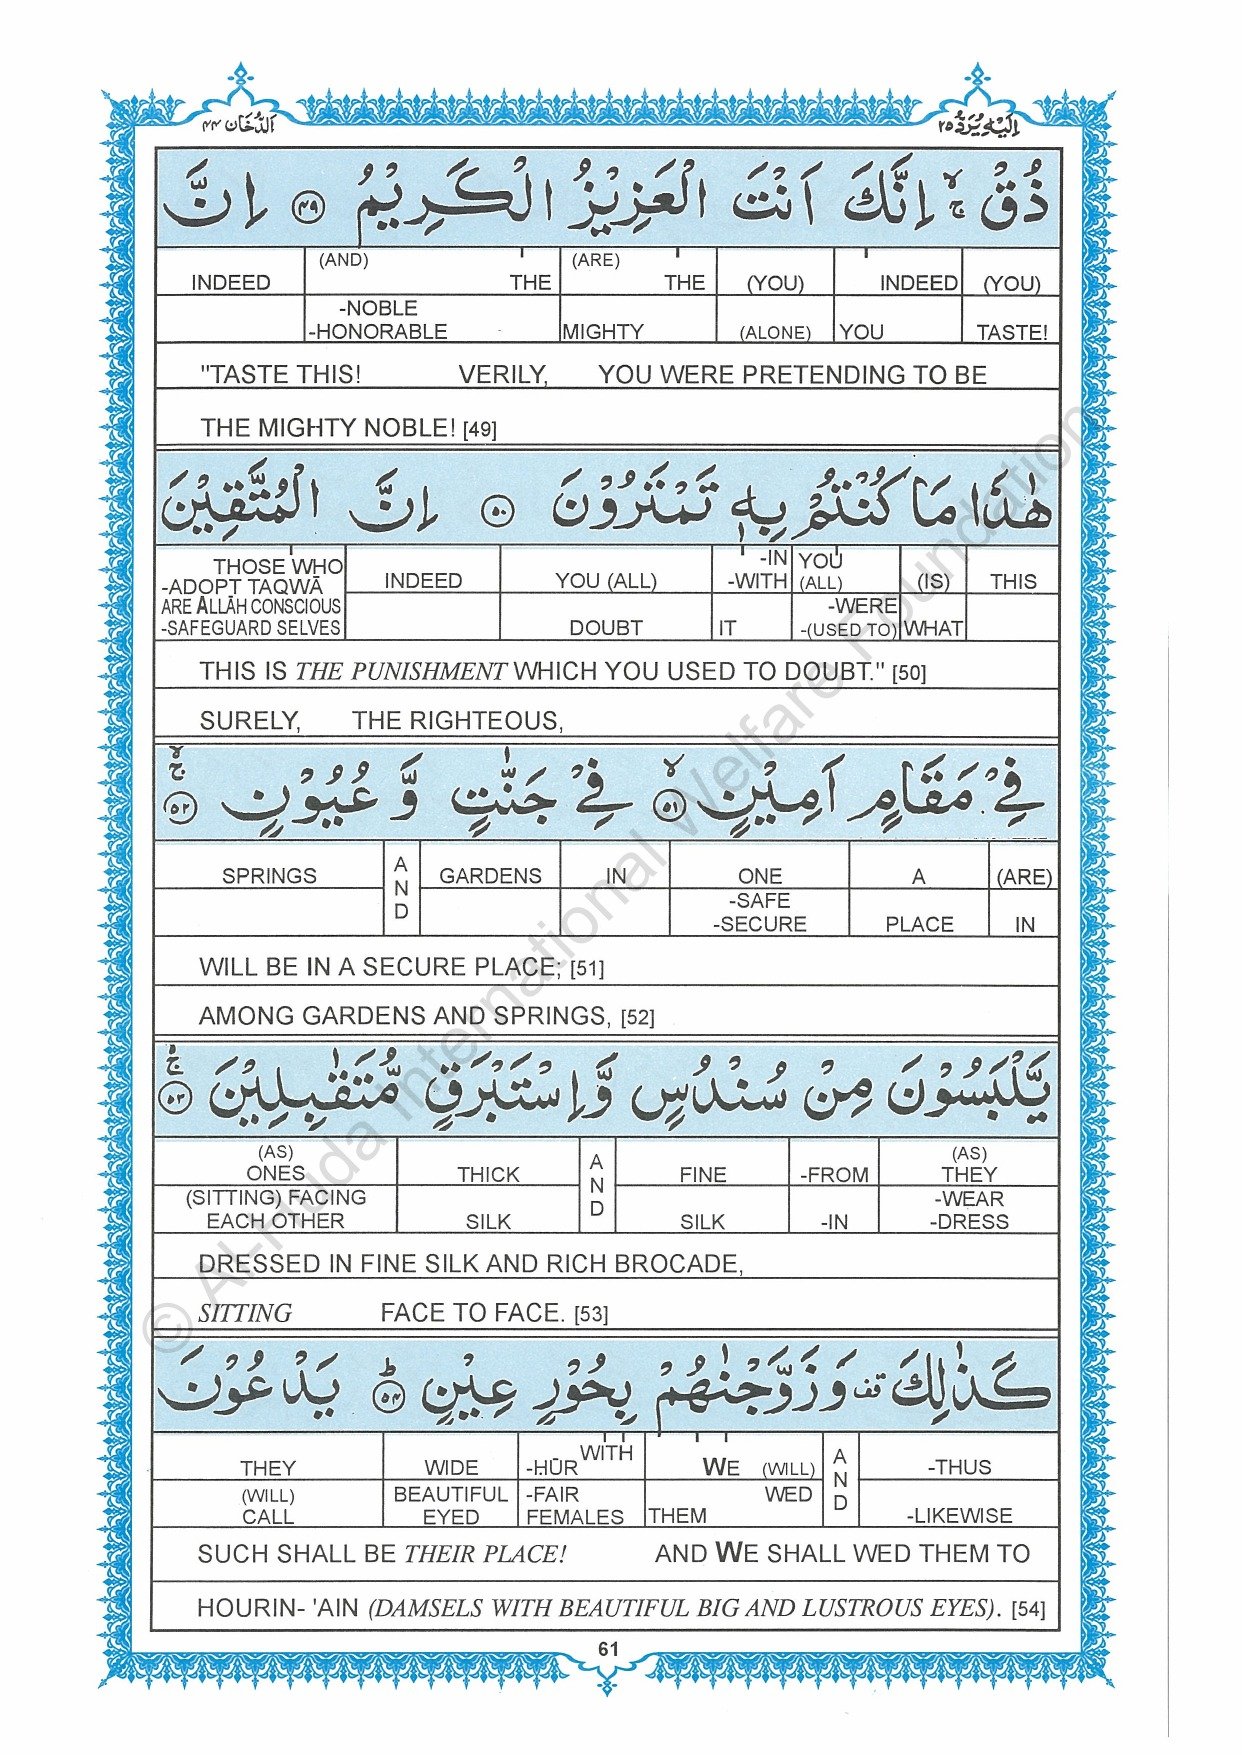 اَلدُّخَان ٤٤
اِلَيْهِ يُرَدُّ ٢٥
ذُقْ ۚۙ اِنَّكَ اَنْتَ الْعَزِيْزُ الْكَرِيْمُ ﴿٤٩﴾ اِنَّ
INDEED (AND) THE (ARE) THE (YOU) INDEED (YOU)
-NOBLE
-HONORABLE MIGHTY (ALONE) YOU TASTE!
"TASTE THIS! VERILY, YOU WERE PRETENDING TO BE
THE MIGHTY NOBLE! [49]
هٰذَا مَا كُنْتُمْ بِهٖ تَمْتَرُوْنَ ﴿٥٠﴾ اِنَّ الْمُتَّقِيْنَ
THOSE WHO INDEED YOU (ALL) -IN YOU (IS) THIS
-ADOPT TAQWĀ -WITH (ALL)
ARE ALLĀH CONSCIOUS -WERE
-SAFEGUARD SELVES DOUBT IT -(USED TO) WHAT
THIS IS THE PUNISHMENT WHICH YOU USED TO DOUBT." [50]
SURELY, THE RIGHTEOUS,
فِيْ مَقَامٍ اَمِيْنٍ ۙ﴿٥١﴾ فِيْ جَنّٰتٍ وَّ عُيُوْنٍ ۚۙ﴿٥٢﴾
SPRINGS AND GARDENS IN ONE A (ARE)
-SAFE
-SECURE PLACE IN
WILL BE IN A SECURE PLACE; [51]
AMONG GARDENS AND SPRINGS, [52]
يَّلْبَسُوْنَ مِنْ سُنْدُسٍ وَّاِسْتَبْرَقٍ مُّتَقٰبِلِيْنَ ۚۙ﴿٥٣﴾
(AS) (AS)
ONES THICK AND FINE -FROM THEY
(SITTING) FACING -WEAR
EACH OTHER SILK SILK -IN -DRESS
DRESSED IN FINE SILK AND RICH BROCADE,
SITTING FACE TO FACE. [53]
كَذٰلِكَ ۫ وَزَوَّجْنٰهُمْ بِحُوْرٍ عِيْنٍ ؕ﴿٥٤﴾ يَدْعُوْنَ
THEY WIDE -ḤŪR WITH WE (WILL) AND -THUS
(WILL) BEAUTIFUL -FAIR WED
CALL EYED FEMALES THEM -LIKEWISE
SUCH SHALL BE THEIR PLACE! AND WE SHALL WED THEM TO
HOURIN- 'AIN (DAMSELS WITH BEAUTIFUL BIG AND LUSTROUS EYES). [54]
61
© Al-Huda International Welfare Foundation